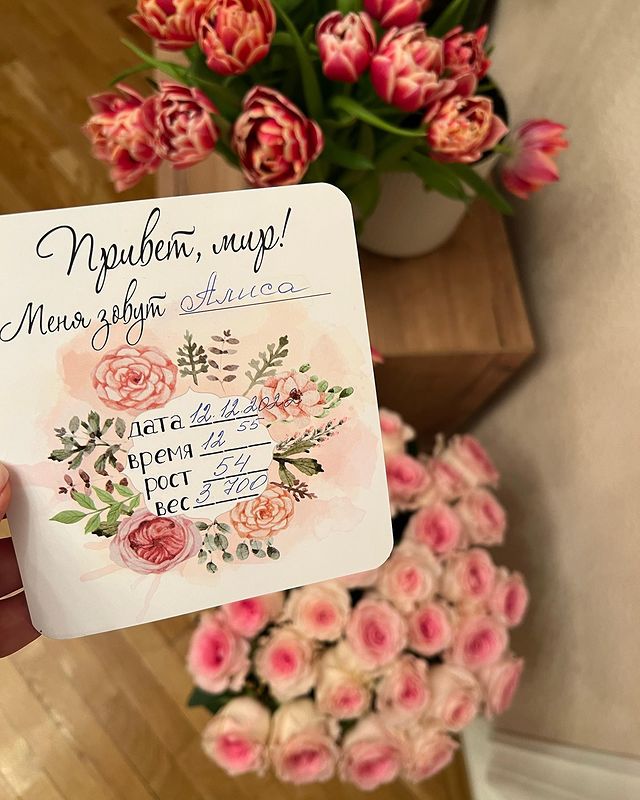 Привет, мир!
Меня зовут Алиса
дата 12.12.2022
время 12 55
рост 54
вес 3 700